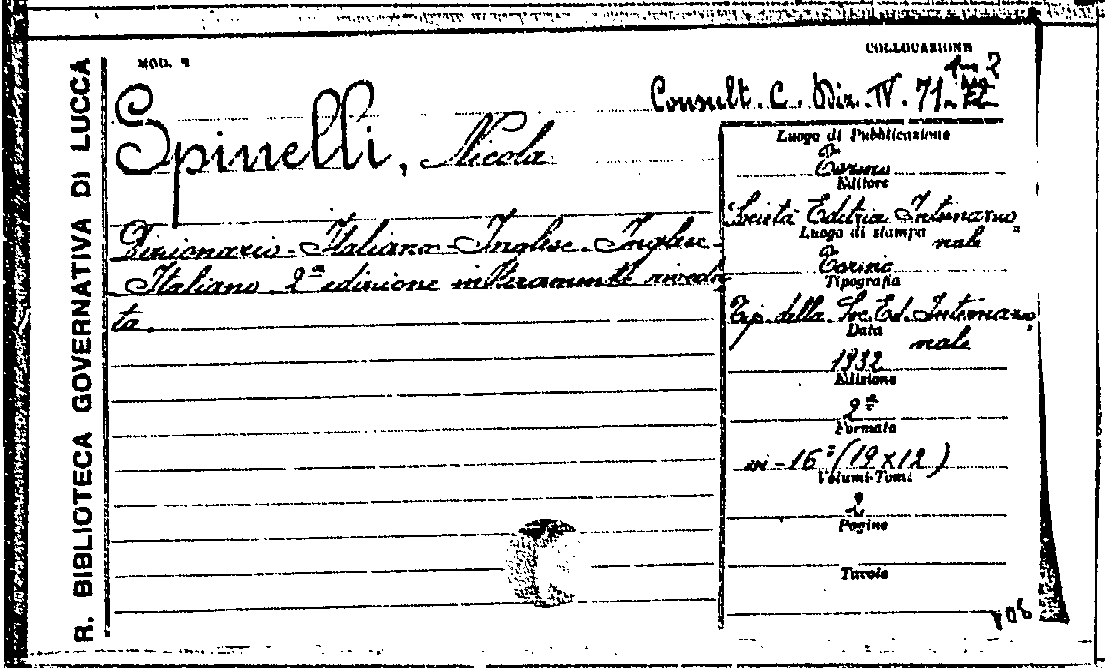 R. BIBLIOTECA GOVERNATIVA DI LUCCA
MOD. 2
COLLOCAZIONE
Consult. C. Diz. IV. 71
Spinelli, Nicola
Dizionario-Italiano-Inglese-Inglese-
Italiano 2ª edizione interamente rivedu
ta.
Luogo di Pubblicazione
Torino
Editore
Società Editrice Internazio
nale
Luogo di stampa
Torino
Tipografia
Tip. della Soc. Ed. Internazio
nale
Data
1932
Edizione
2ª
Formato
in-16° (19x12)
Volumi-Tomi
2
Pagine
Tavole